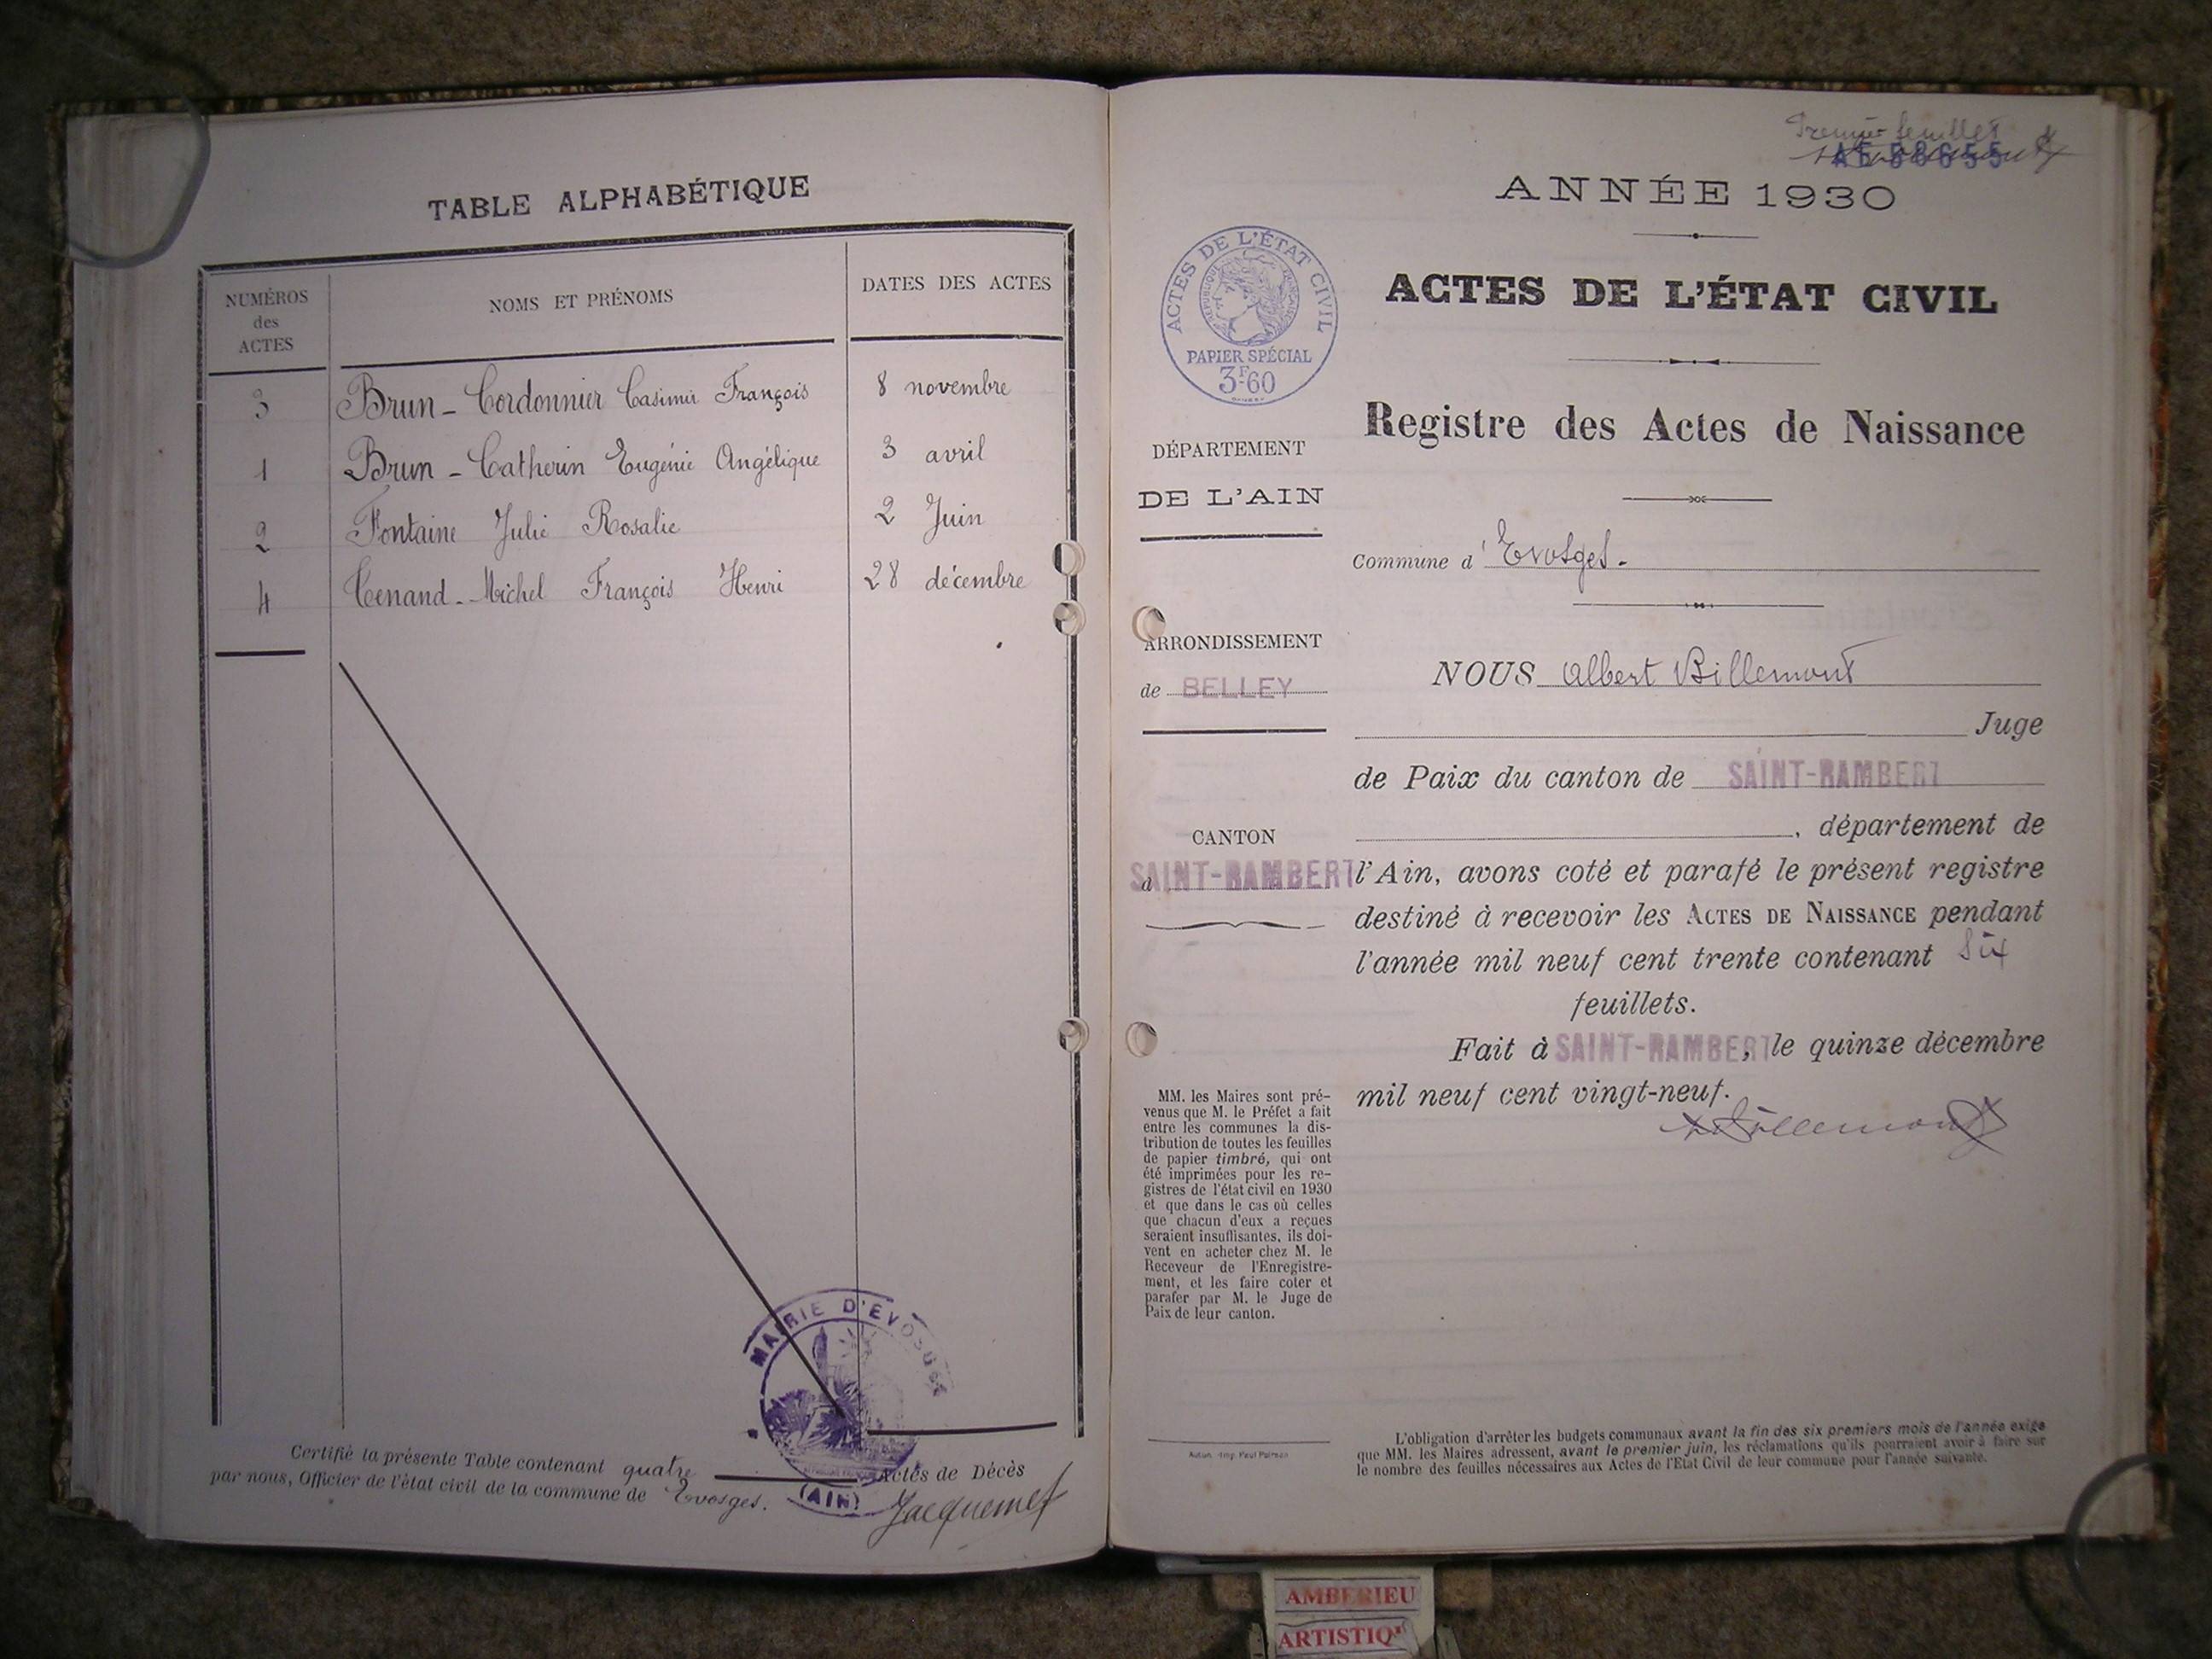 TABLE ALPHABÉTIQUE
NUMÉROS
des
ACTES
NOMS ET PRÉNOMS
DATES DES ACTES
3 Brun - Cordonnier Casimir François 8 novembre
1 Brun - Catherin Eugénie Angélique 3 avril
2 Fontaine Julie Rosalie 2 Juin
4 Tenand - Michel François Henri 28 décembre
MAIRIE D'EVOSGES
(AIN)
Certifié la présente Table contenant quatre Actes de Décès
par nous, Officier de l'état civil de la commune de Evosges.
Jacquemet
Premier feuillet
ANNÉE 1930
ACTES DE L'ÉTAT CIVIL
RÉPUBLIQUE FRANÇAISE
PAPIER SPÉCIAL
3F60
ACTES DE L'ÉTAT CIVIL
Registre des Actes de Naissance
DÉPARTEMENT
DE L'AIN
Commune d'Evosges.
ARRONDISSEMENT
de BELLEY
CANTON
d SAINT-RAMBERT
NOUS Albert Billemont
Juge
de Paix du canton de SAINT-RAMBERT
, département de
l'Ain, avons coté et parafé le présent registre
destiné à recevoir les ACTES DE NAISSANCE pendant
l'année mil neuf cent trente contenant Six
feuillets.
Fait à SAINT-RAMBERT, le quinze décembre
mil neuf cent vingt-neuf.
ABillemont
MM. les Maires sont pré-
venus que M. le Préfet a fait
entre les communes la dis-
tribution de toutes les feuilles
de papier timbré, qui ont
été imprimées pour les re-
gistres de l'état civil en 1930
et que dans le cas où celles
que chacun d'eux a reçues
seraient insuffisantes, ils doi-
vent en acheter chez M. le
Receveur de l'Enregistre-
ment, et les faire coter et
parafer par M. le Juge de
Paix de leur canton.
L'obligation d'arrêter les budgets communaux avant la fin des six premiers mois de l'année exige
que MM. les Maires adressent, avant le premier juin, les réclamations qu'ils pourraient avoir à faire sur
le nombre des feuilles nécessaires aux Actes de l'Etat Civil de leur commune pour l'année suivante.
AMBERIEU
ARTISTIQ